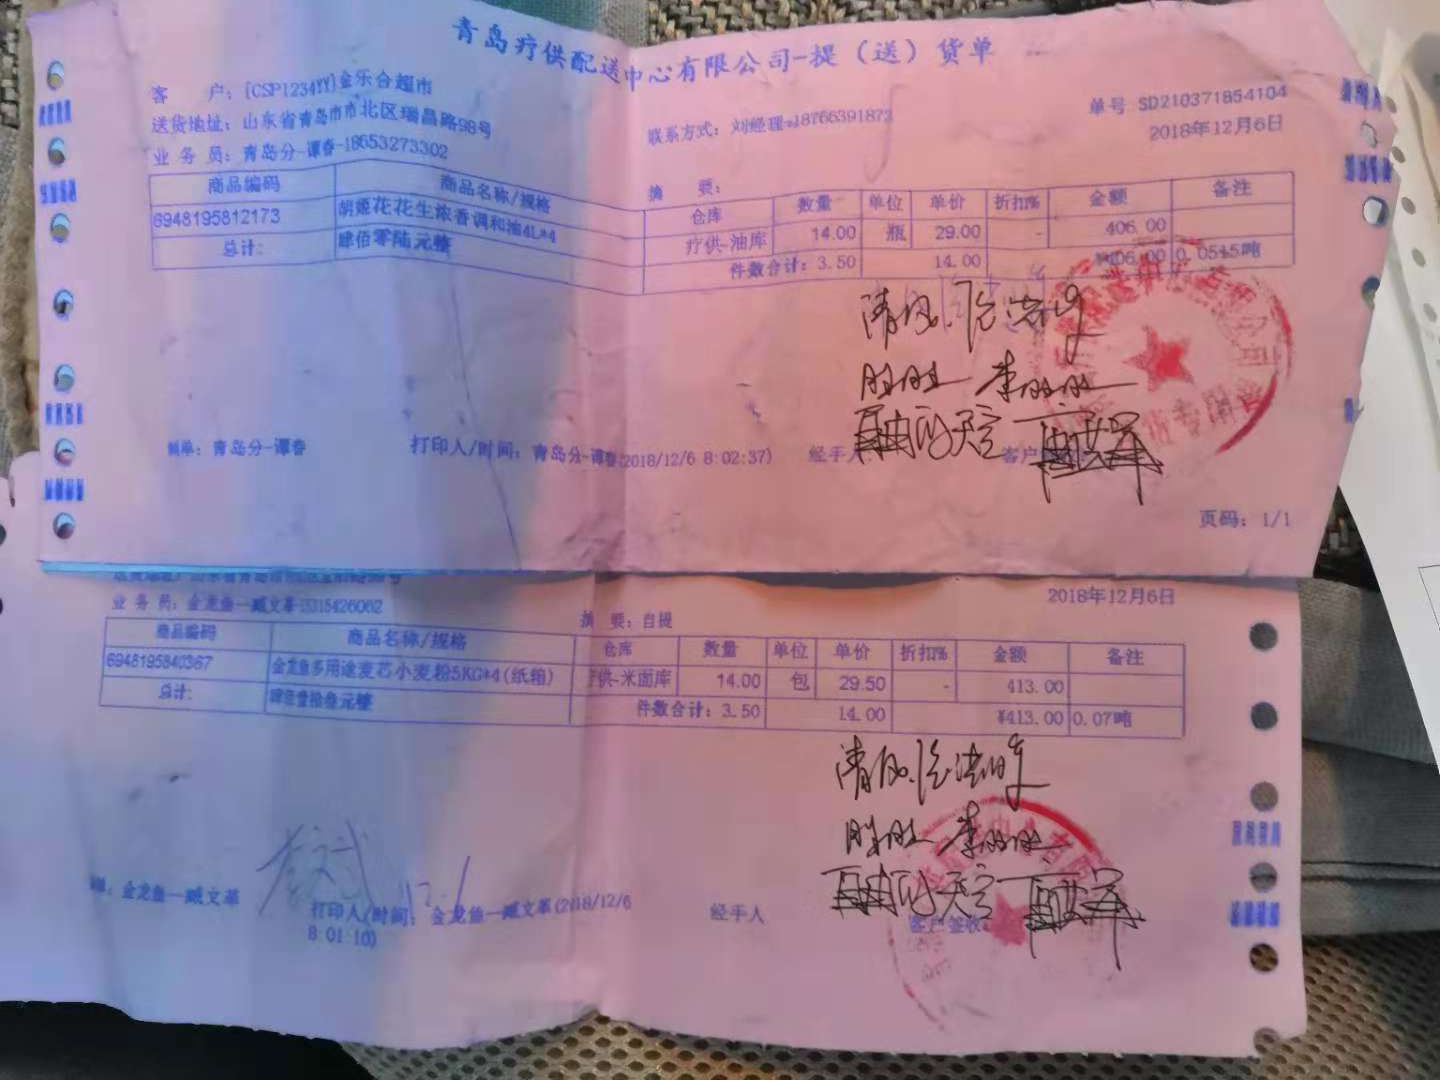 青岛疗供配送中心有限公司-提（送）货单
客 户：[CSP1234YY]金乐合超市
单号 SD210371854104
送货地址：山东省青岛市市北区瑞昌路98号
联系方式：刘经理 18766391872
2018年12月6日
业 务 员：青岛分-谭春-18653273302
摘 要：
商品编码 商品名称/规格 仓库 数量 单位 单价 折扣% 金额 备注
6948195812173 胡姬花花生浓香调和油4L*4 疗供-油库 14.00 瓶 29.00 - 406.00
总计: 肆佰零陆元整 件数合计：3.50 14.00 ¥406.00 0.0545吨
清风
制单：青岛分-谭春 打印人/时间：青岛分-谭春(2018/12/6 8:02:37) 经手人 客户
页码：1/1
2018年12月6日
业 务 员：金龙鱼—臧文革-15315426062
摘 要：自提
商品编码 商品名称/规格 仓库 数量 单位 单价 折扣% 金额 备注
6948195840367 金龙鱼多用途麦芯小麦粉5KG*4(纸箱) 供-米面库 14.00 包 29.50 - 413.00
总计: 肆佰壹拾叁元整 件数合计：3.50 14.00 ¥413.00 0.07吨
清风
单：金龙鱼—臧文革 打印人/时间：金龙鱼—臧文革(2018/12/6 经手人 客户签收
8:01:10)